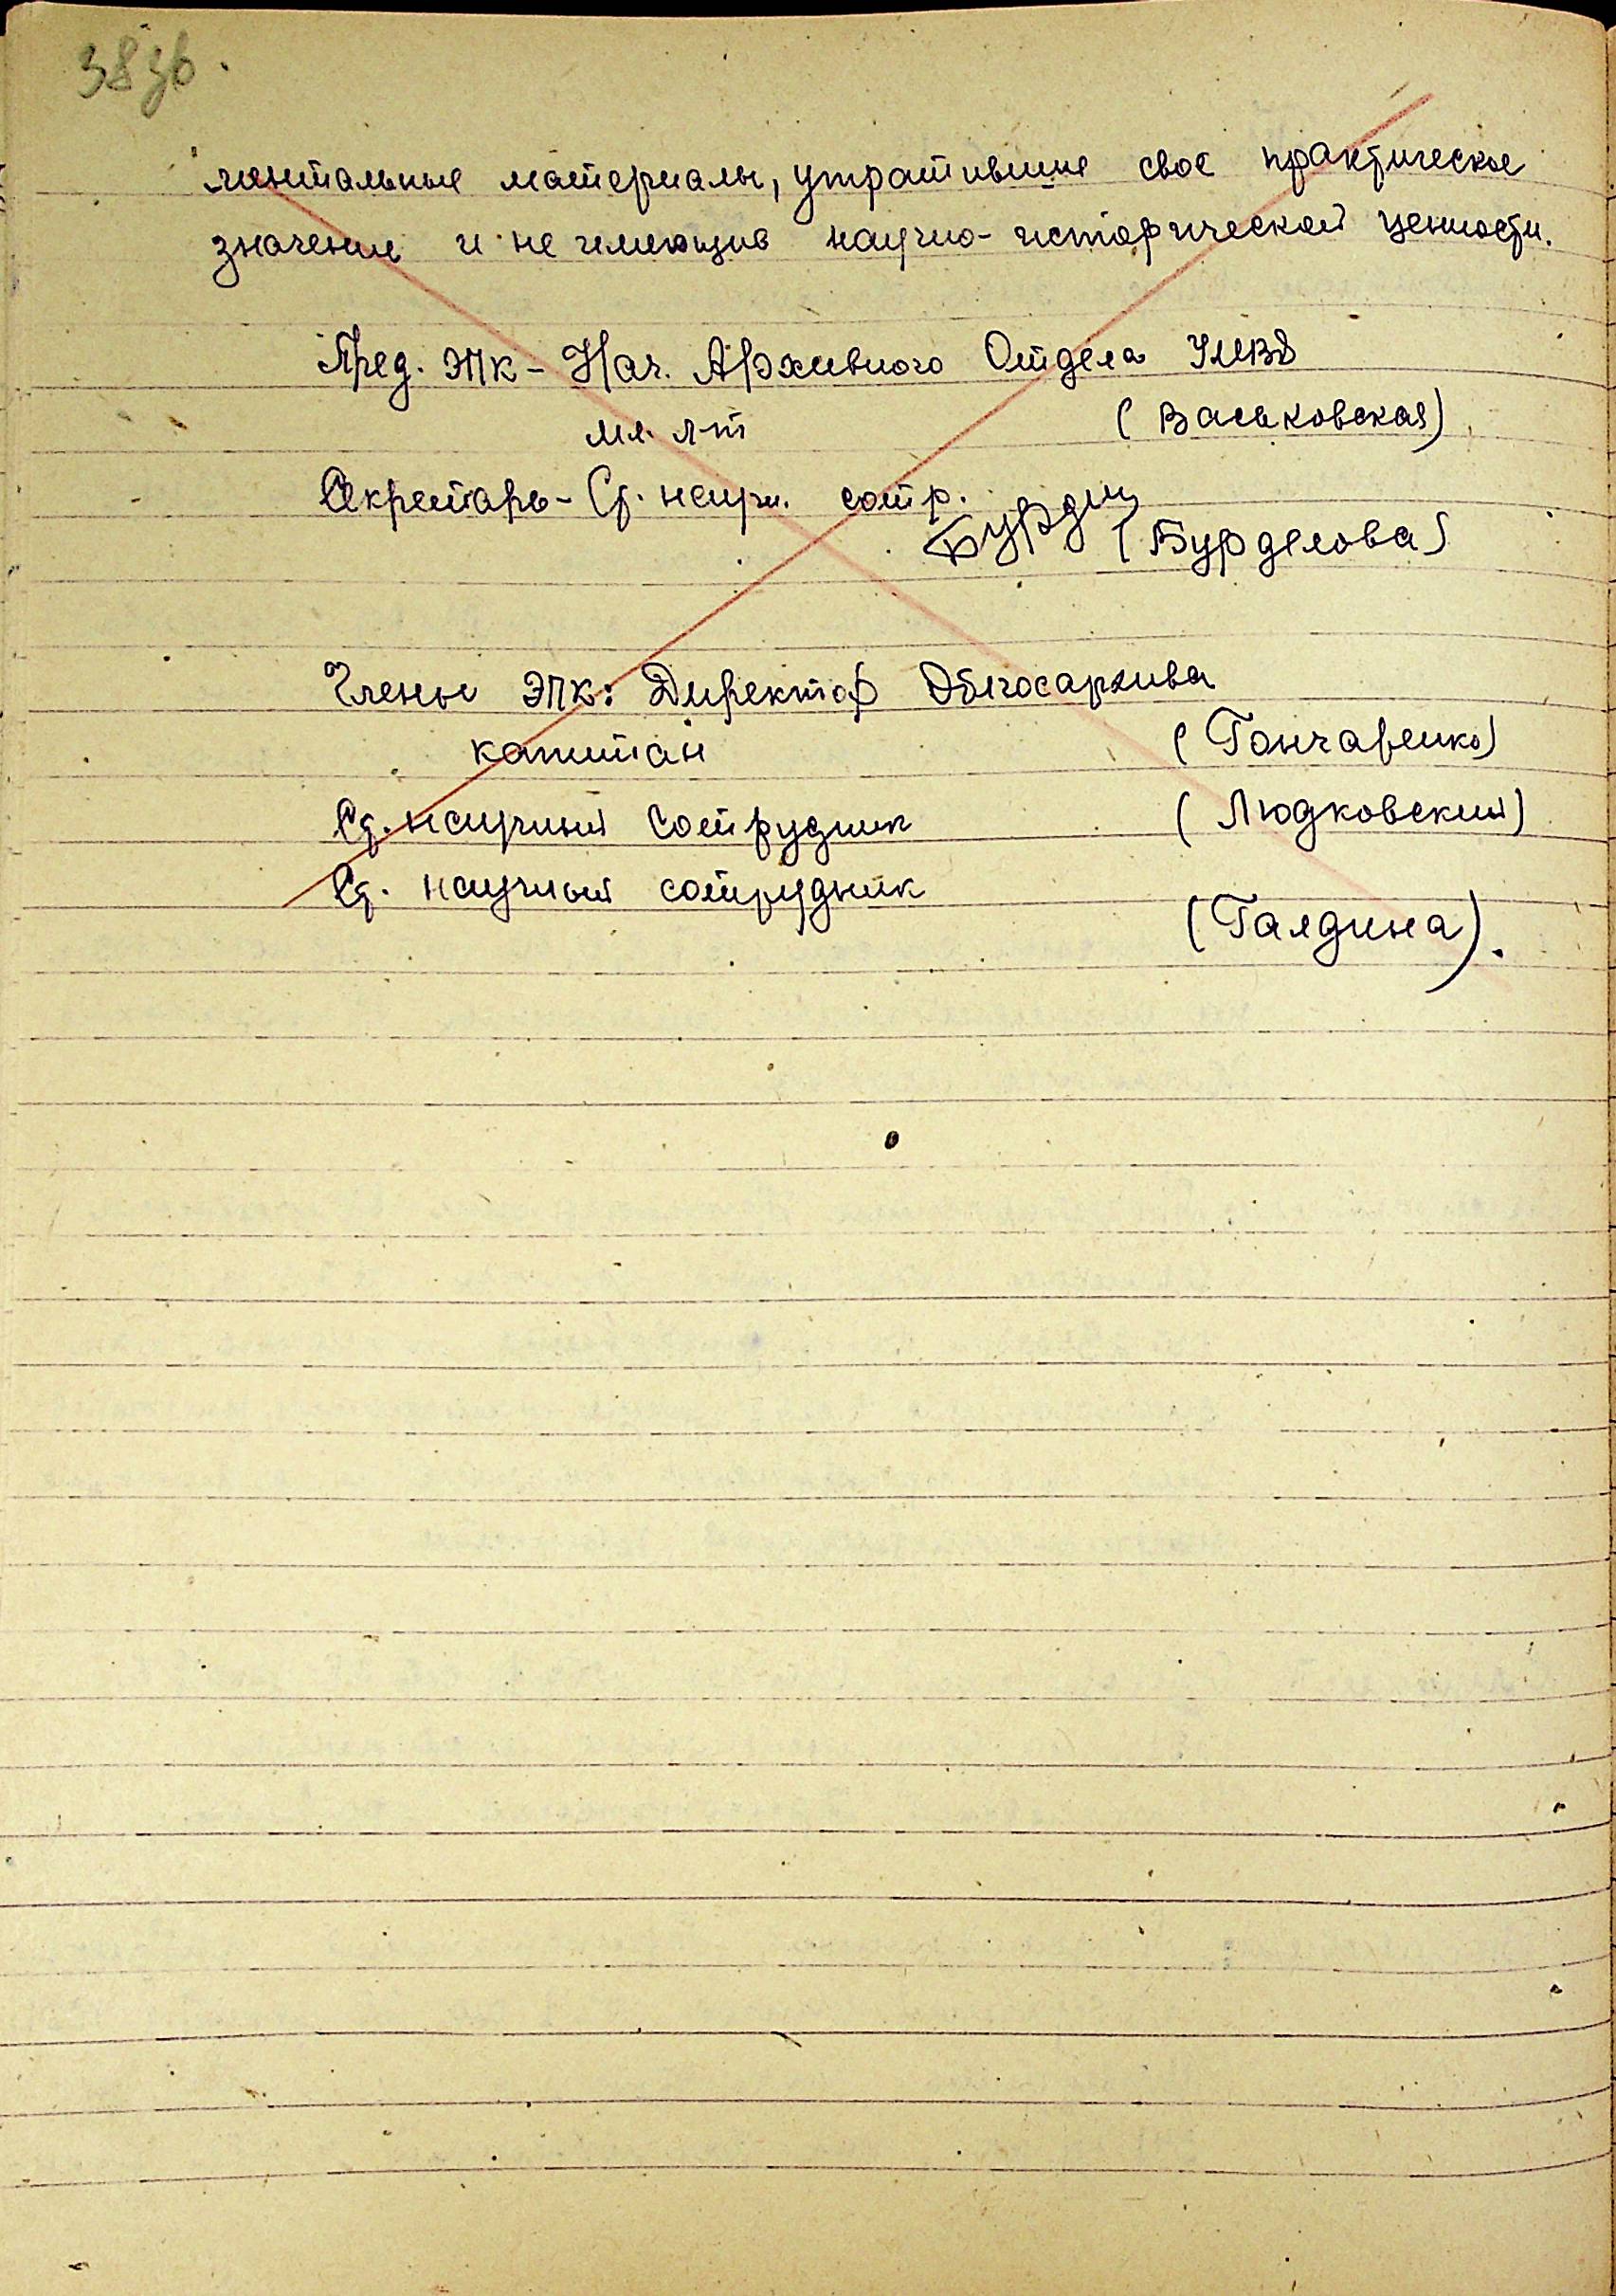 38зв.
ментальные материалы, утратившие свое практическое
значение и не имеющие научно-исторической ценности.
Пред. ЭПК - Нач. Архивного Отдела УМВД
мл. л-т (Васьковская)
Секретарь - Ст. научн. сотр.
Бурдел (Бурделова)
Члены ЭПК: Директор Облгосархива
капитан (Гончаренко)
Ст. научный сотрудник (Людковский)
Ст. научный сотрудник
(Галдина).